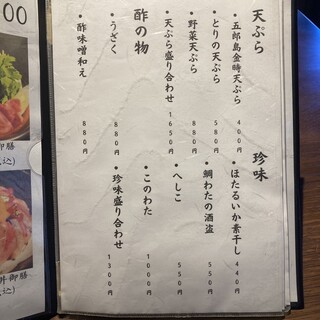 天ぷら
・五郎島金時天ぷら 400円
・とりの天ぷら 580円
・野菜天ぷら 880円
・天ぷら盛り合わせ 1650円
酢の物
・うざく 880円
・酢味噌和え 880円
珍味
・ほたるいか素干し 440円
・鯛わたの酒盗 550円
・へしこ 550円
・このわた 1000円
・珍味盛り合わせ 1300円
00
御膳
込)
丼御膳
込)